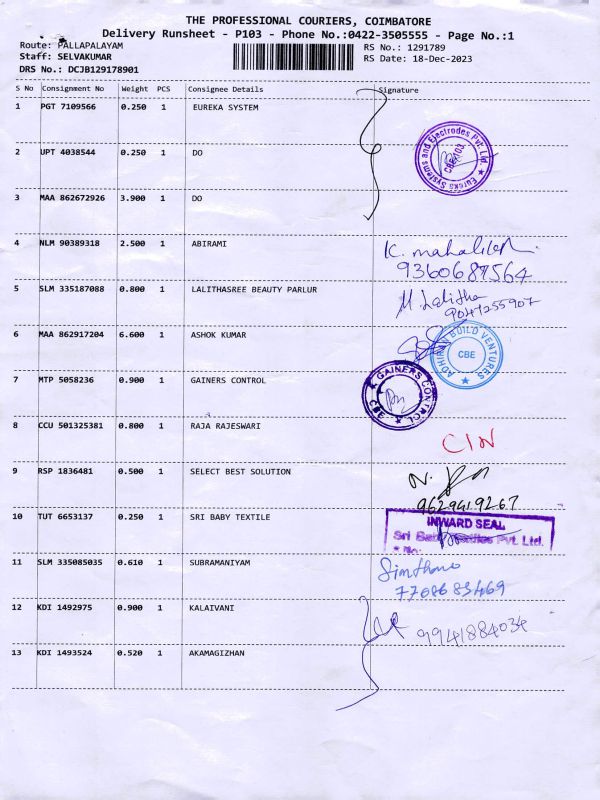 THE PROFESSIONAL COURIERS, COIMBATORE
Delivery Runsheet - P103 - Phone No.:0422-3505555 - Page No.:1
Route: PALLAPALAYAM
RS No.: 1291789
Staff: SELVAKUMAR
RS Date: 18-Dec-2023
DRS No.: DCJB129178901
S No Consignment No Weight PCS Consignee Details Signature
1 PGT 7109566 0.250 1 EUREKA SYSTEM
Eureka Systems and Electrodes Pvt. Ltd.
CBE-103
2 UPT 4038544 0.250 1 DO
3 MAA 862672926 3.900 1 DO
4 NLM 90389318 2.500 1 ABIRAMI
K.
9360687564
5 SLM 335187088 0.800 1 LALITHASREE BEAUTY PARLUR
M. Lalitha
9047255907
6 MAA 862917204 6.600 1 ASHOK KUMAR
BUILD VENTURES
CBE
7 MTP 5058236 0.900 1 GAINERS CONTROL
GAINERS CONTROL
CBE
8 CCU 501325381 0.800 1 RAJA RAJESWARI
9 RSP 1836481 0.500 1 SELECT BEST SOLUTION
N.
9629419267
10 TUT 6653137 0.250 1 SRI BABY TEXTILE
INWARD SEAL
Sri Pvt. Ltd.
No:
11 SLM 335085035 0.610 1 SUBRAMANIYAM
7708683469
12 KDI 1492975 0.900 1 KALAIVANI
9941884034
13 KDI 1493524 0.520 1 AKAMAGIZHAN